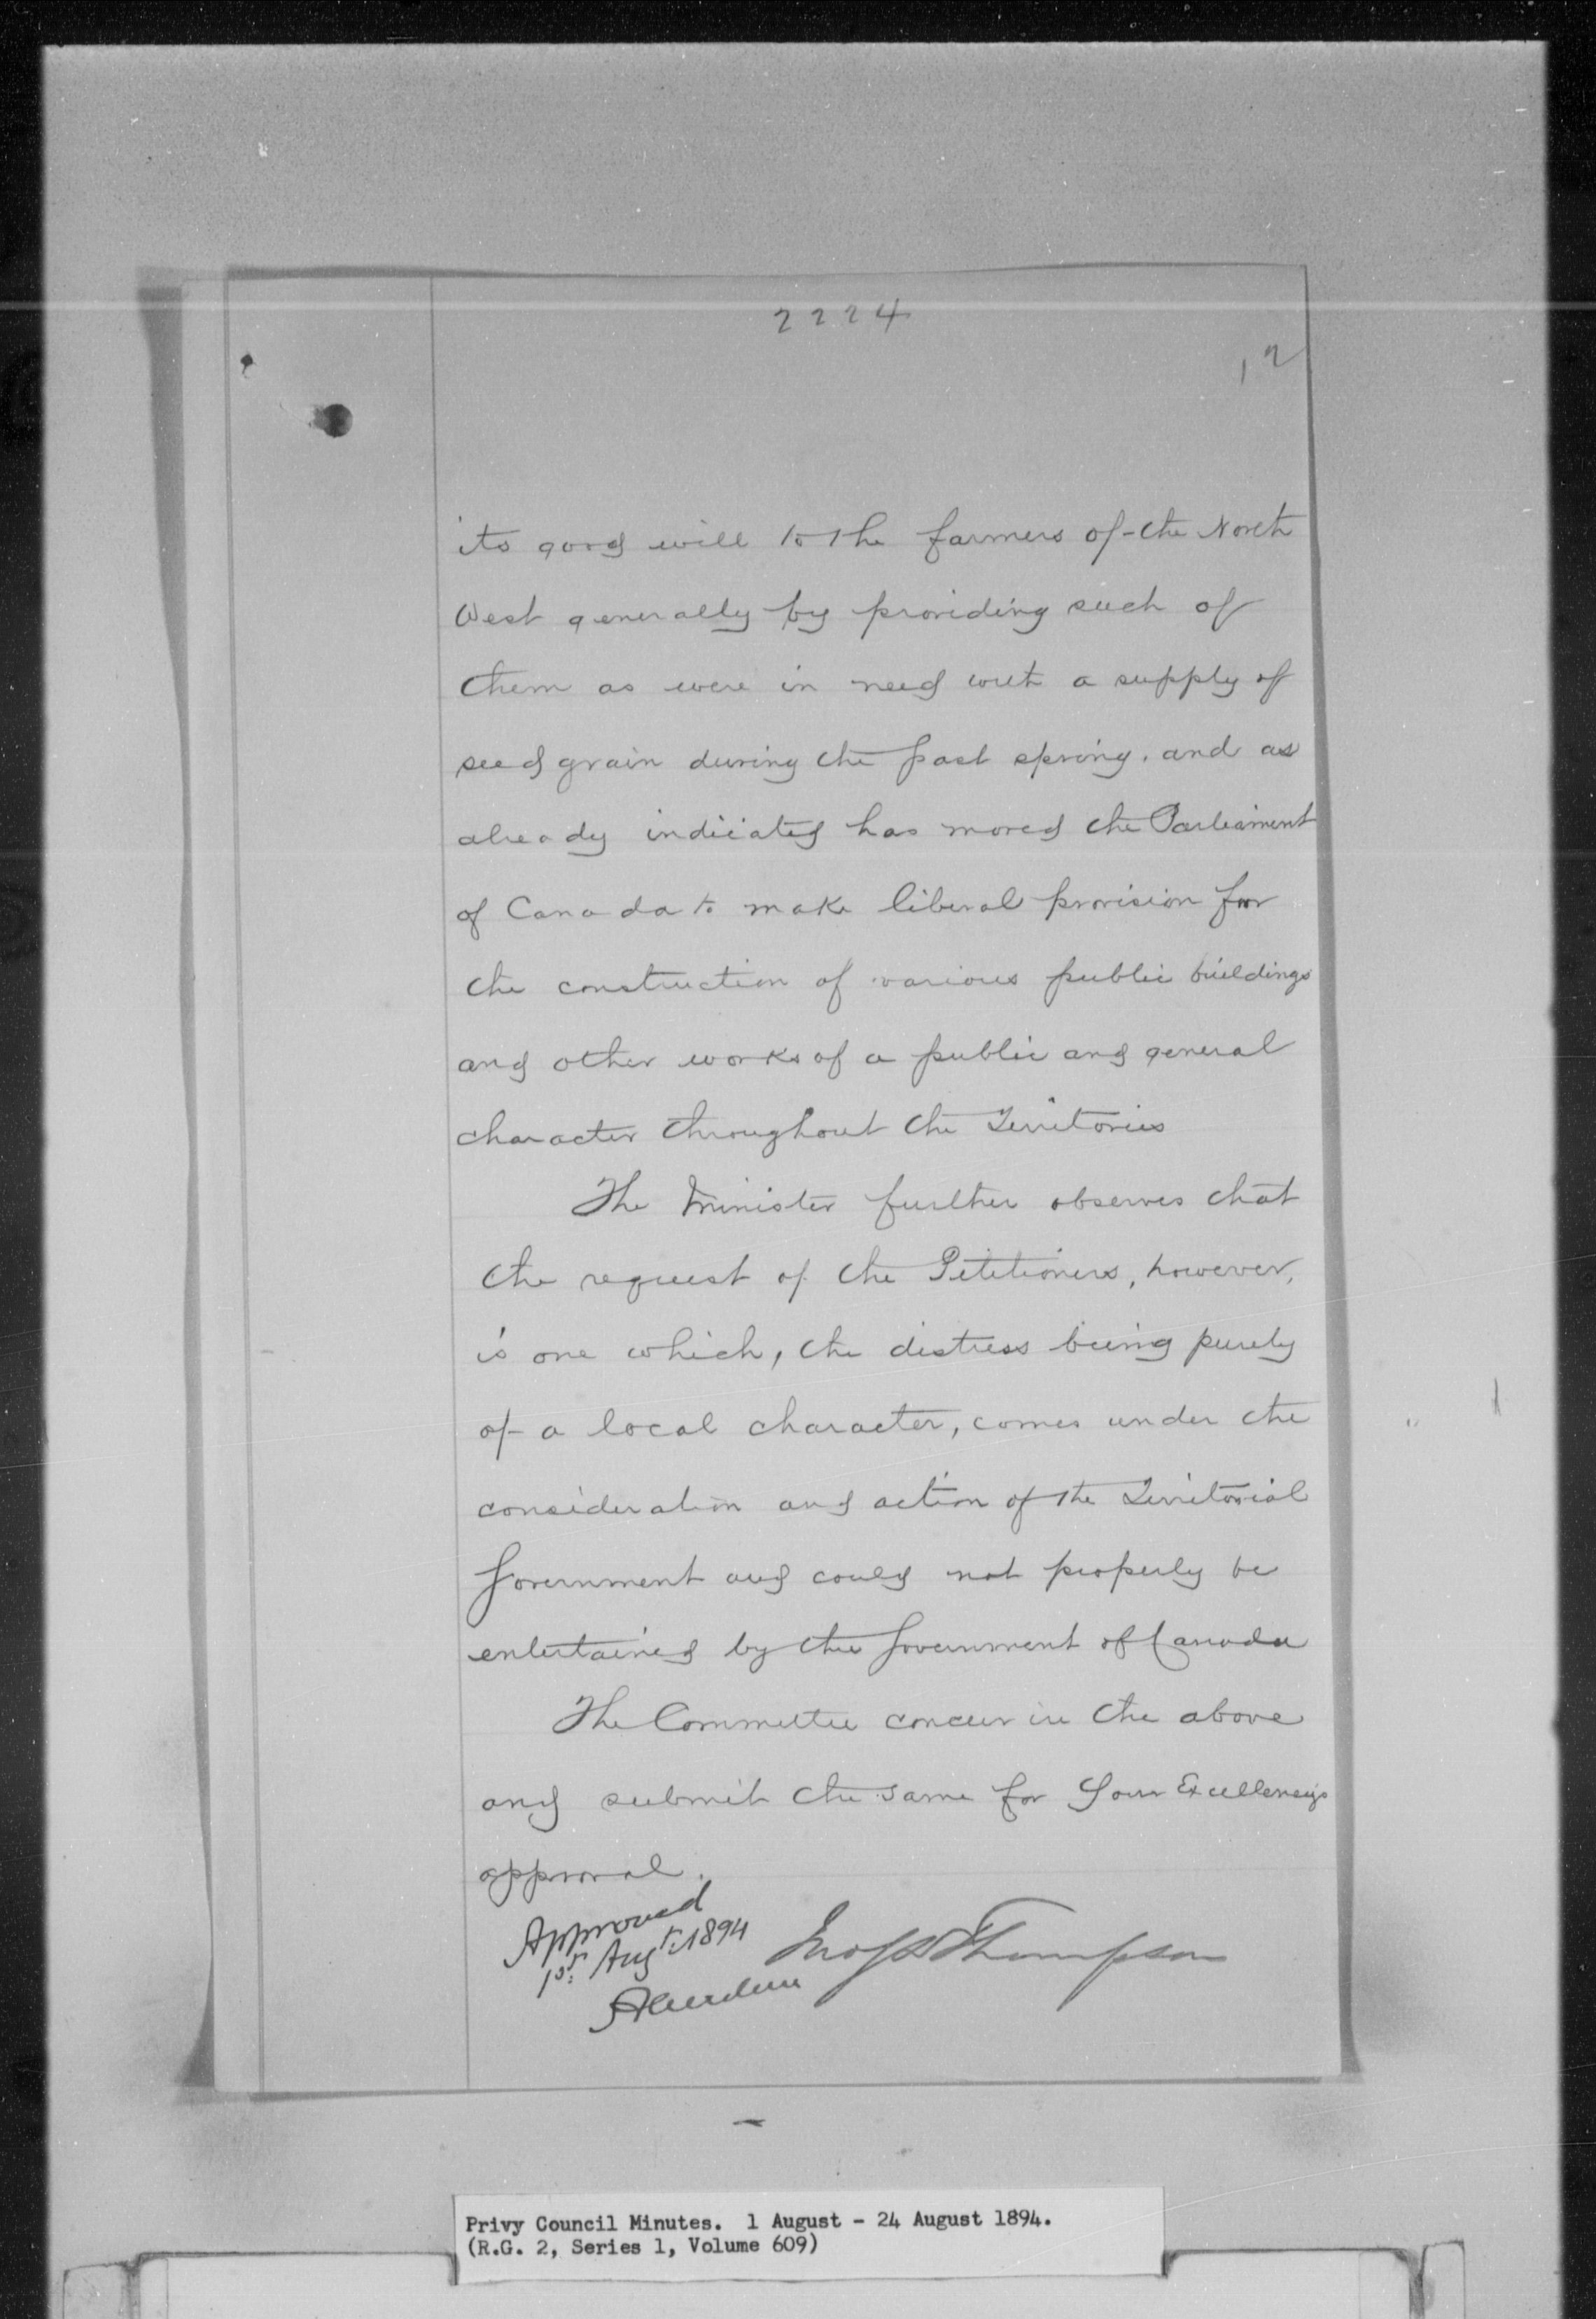 2224
12
its good will to the farmers of the North
West generally by providing such of
them as were in need with a supply of
seed grain during the past spring, and as
already indicated has moved the Parliament
of Canada to make liberal provision for
the construction of various public buildings
and other works of a public and general
character throughout the Territories
The Minister further observes that
the request of the Petitioners, however,
is one which, the distress being purely
of a local character, comes under the
consideration and action of the Territorial
Government and could not properly be
entertained by the Government of Canada
The Committee concur in the above
and submit the same for Your Excellency's
approval.
Approved
1st Augt. 1894
Aberdeen
Jno S D Thompson
Privy Council Minutes. 1 August - 24 August 1894.
(R.G. 2, Series 1, Volume 609)